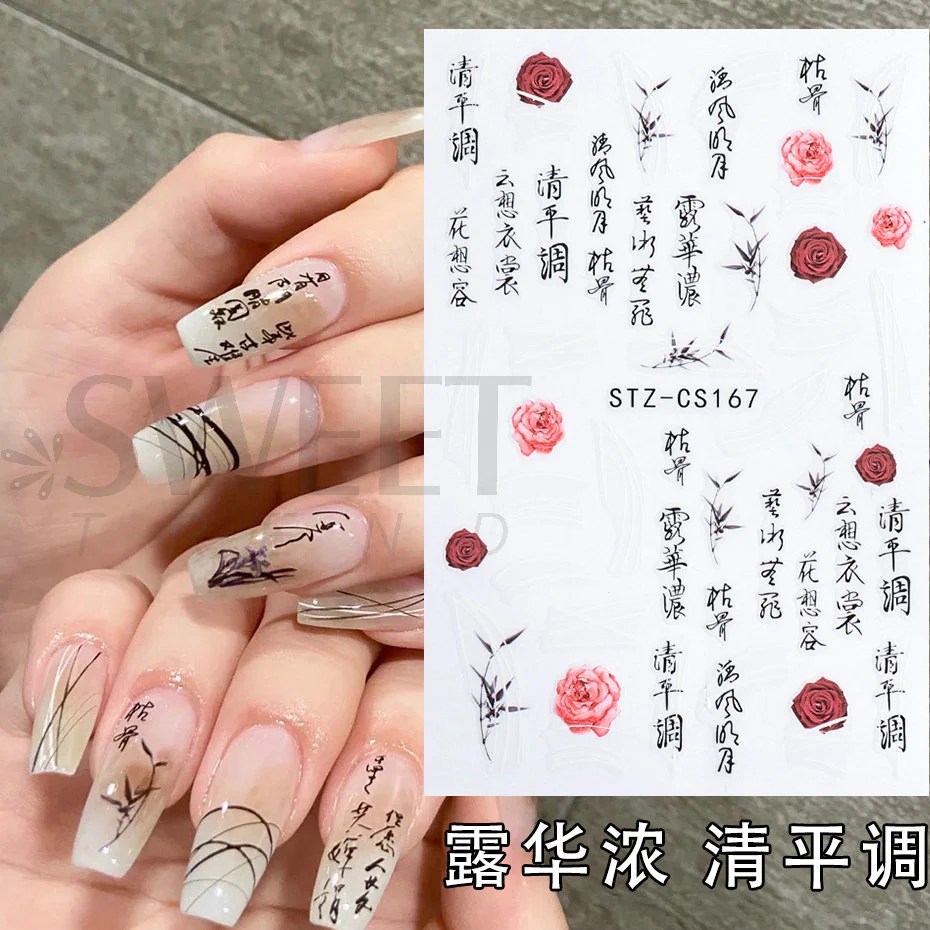 清平調
清风明月
枯骨
清风明月
云想衣裳
清平調
露華濃
花想容
枯骨
STZ-CS167
枯骨
枯骨
露華濃
云想衣裳
清平調
花想容
枯骨
清平調
清风明月
清平調
枯骨
SWEET
露华浓 清平调